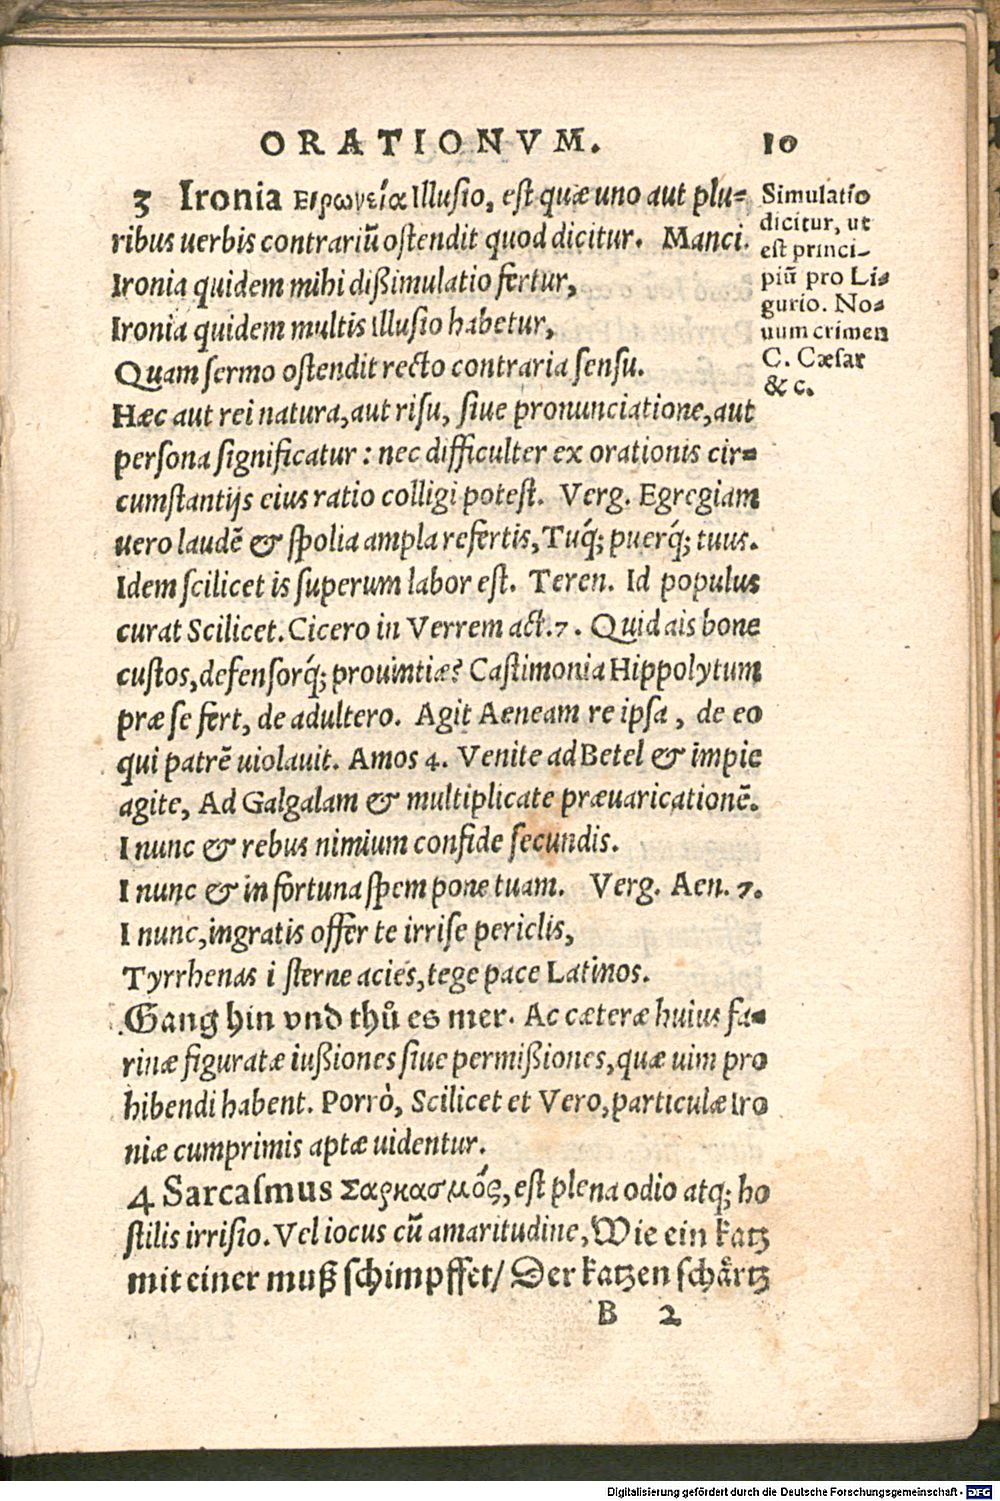 ORATIONVM. 10
3 Ironia Ειρωνεία Illusio, est quæ uno aut plu-
ribus uerbis contrariũ ostendit quod dicitur. Manci.
Ironia quidem mihi dißimulatio fertur,
Ironia quidem multis illusio habetur,
Quam sermo ostendit recto contraria sensu.
Hæc aut rei natura, aut risu, siue pronunciatione, aut
persona significatur: nec difficulter ex orationis cir-
cumstantijs eius ratio colligi potest. Verg. Egregiam
uero laudẽ & spolia ampla refertis, Tuq́; puerq́; tuus.
Idem scilicet is superum labor est. Teren. Id populus
curat Scilicet. Cicero in Verrem act. 7. Quid ais bone
custos, defensorq́; prouintiæ? Castimonia Hippolytum
præ se fert, de adultero. Agit Aeneam re ipsa, de eo
qui patrẽ uiolauit. Amos 4. Venite ad Betel & impie
agite, Ad Galgalam & multiplicate præuaricationẽ.
I nunc & rebus nimium confide secundis.
I nunc & in fortuna spem pone tuam. Verg. Aen. 7.
I nunc, ingratis offer te irrise periclis,
Tyrrhenas i sterne acies, tege pace Latinos.
Gang hin vnd thů es mer. Ac cæteræ huius fa-
rinæ figuratæ iußiones siue permißiones, quæ uim pro
hibendi habent. Porrò, Scilicet et Vero, particulæ Iro
niæ cumprimis aptæ uidentur.
4 Sarcasmus Σαρκασμός, est plena odio atq; ho
stilis irrisio. Vel iocus cũ amaritudine, Wie ein katz
mit einer muß schimpffet/ Der katzen schärtz
B 2
Simulatio
dicitur, ut
est princi-
piũ pro Li-
gurio. No-
uum crimen
C. Cæsar
& c.
Digitalisierung gefördert durch die Deutsche Forschungsgemeinschaft - DFG